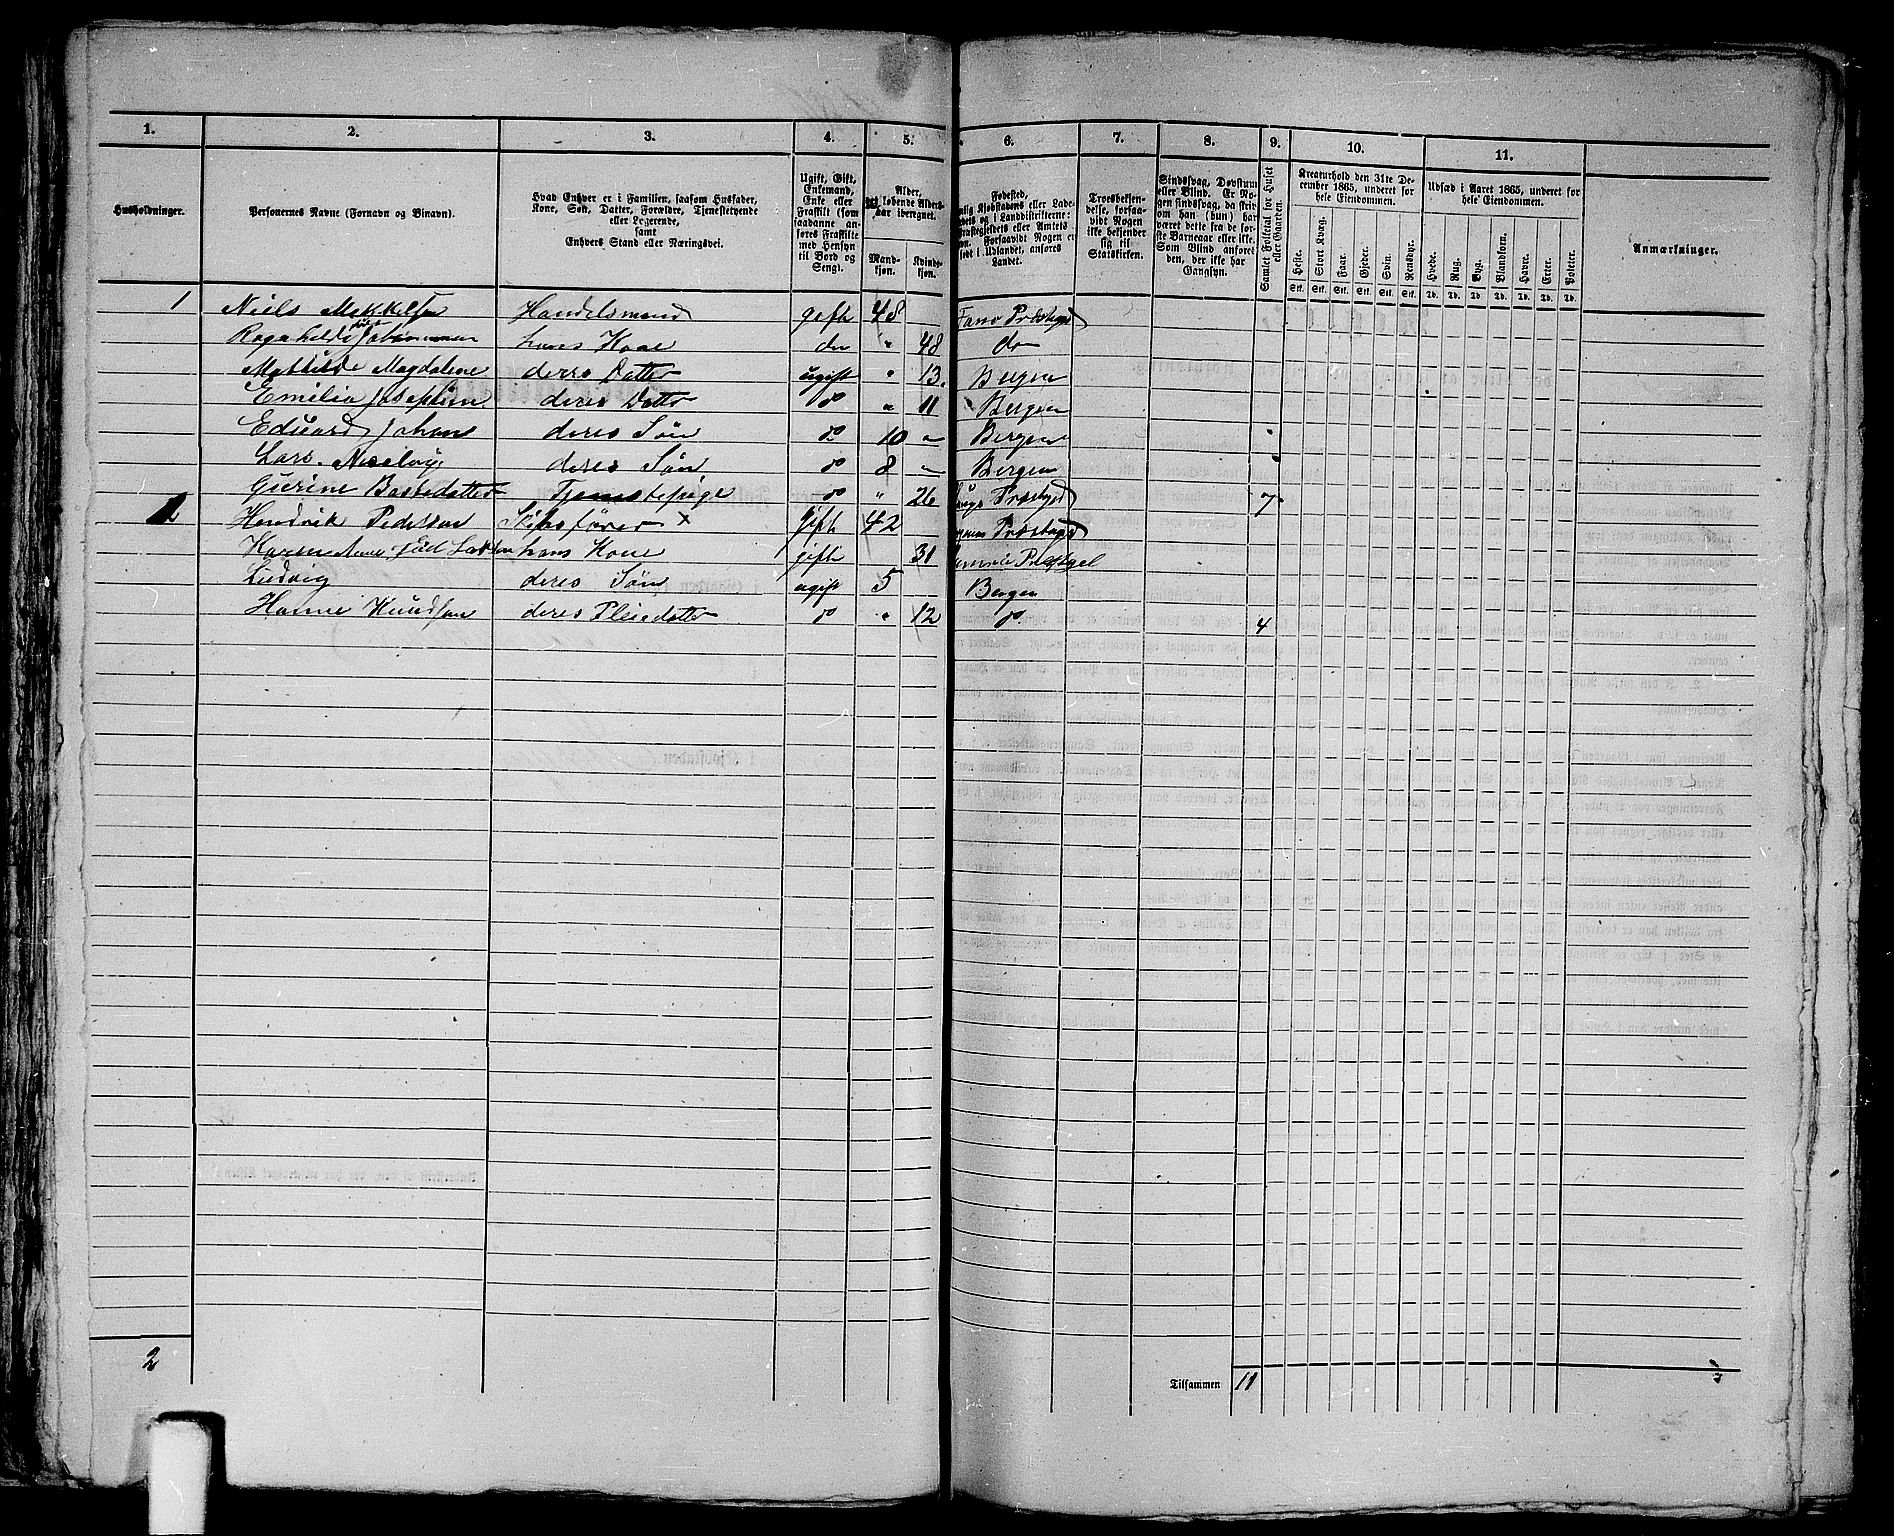 1. 2. 3. 4. 5. 6. 7. 8. 9. 10. 11.
Husholdninger.
Personernes Navne (Fornavn og Binavn).
Hvad Enhver er i Familien, saasom Husfader,
Kone, Søn, Datter, Forældre, Tjenestetyende
eller Logerende,
samt
Enhvers Stand eller Næringsvei.
Ugift, Gift,
Enkemand,
Enke eller
Fraskilt (som
saadanne an-
føres Fraskilte
med Hensyn
til Bord og
Seng).
Alder,
det løbende Alders-
aar iberegnet.
Mand-
kjøn.
Kvinde-
kjøn.
Fødested,
Kjøbstadens eller Lade-
og i Landdistrikterne:
eller Amtets
Navn. Forsaavidt Nogen er
født i Udlandet, anføres
Landet.
Troesbekjen-
delse, forsaa-
vidt Nogen
ikke bekjender
sig til
Statskirken.
Sindssvag, Døvstum
eller Blind. Er No-
gen sindssvag, da skriv
om han (hun) har
været dette fra de før-
ste Barneaar eller ikke.
Som Blind anføres
den, der ikke har
Gangsyn.
Samlet Folketal for Huset
eller Gaarden.
Kreaturhold den 31te De-
cember 1865, underet for
hele Eiendommen.
Heste. Stort Kvæg. Faar. Gjeder. Svin. Rensdyr.
Stk. Stk. Stk. Stk. Stk. Stk.
Udsæd i Aaret 1865, underet for
hele Eiendommen.
Hvede. Rug. Byg. Blandkorn. Havre. Erter. Poteter.
Td. Td. Td. Td. Td. Td. Td.
Anmærkninger.
1 Niels Mekkelsen Handelsmand gift 48 Fano Præstegd
Ragnhilde født hans Kone do " 48 do
Mathilde Magdalene deres Datter ugift " 13. Bergen
Emilia Josephine deres Datter do " 11 Bergen
Eduard Johan deres Søn do 10 - Bergen
Lars deres Søn do 8 - Bergen
Gurine Tjenestepige do " 26 Præstegd 7
2 Hendrik Pedersen Skibsfører x gift 42 Præstegd
Karen Anne født hans Kone gift 31
Ludvig deres Søn ugift 5 Bergen
Hanne Knudsen deres Pleiedatter do " 12 do 4
2
Tilsammen 11